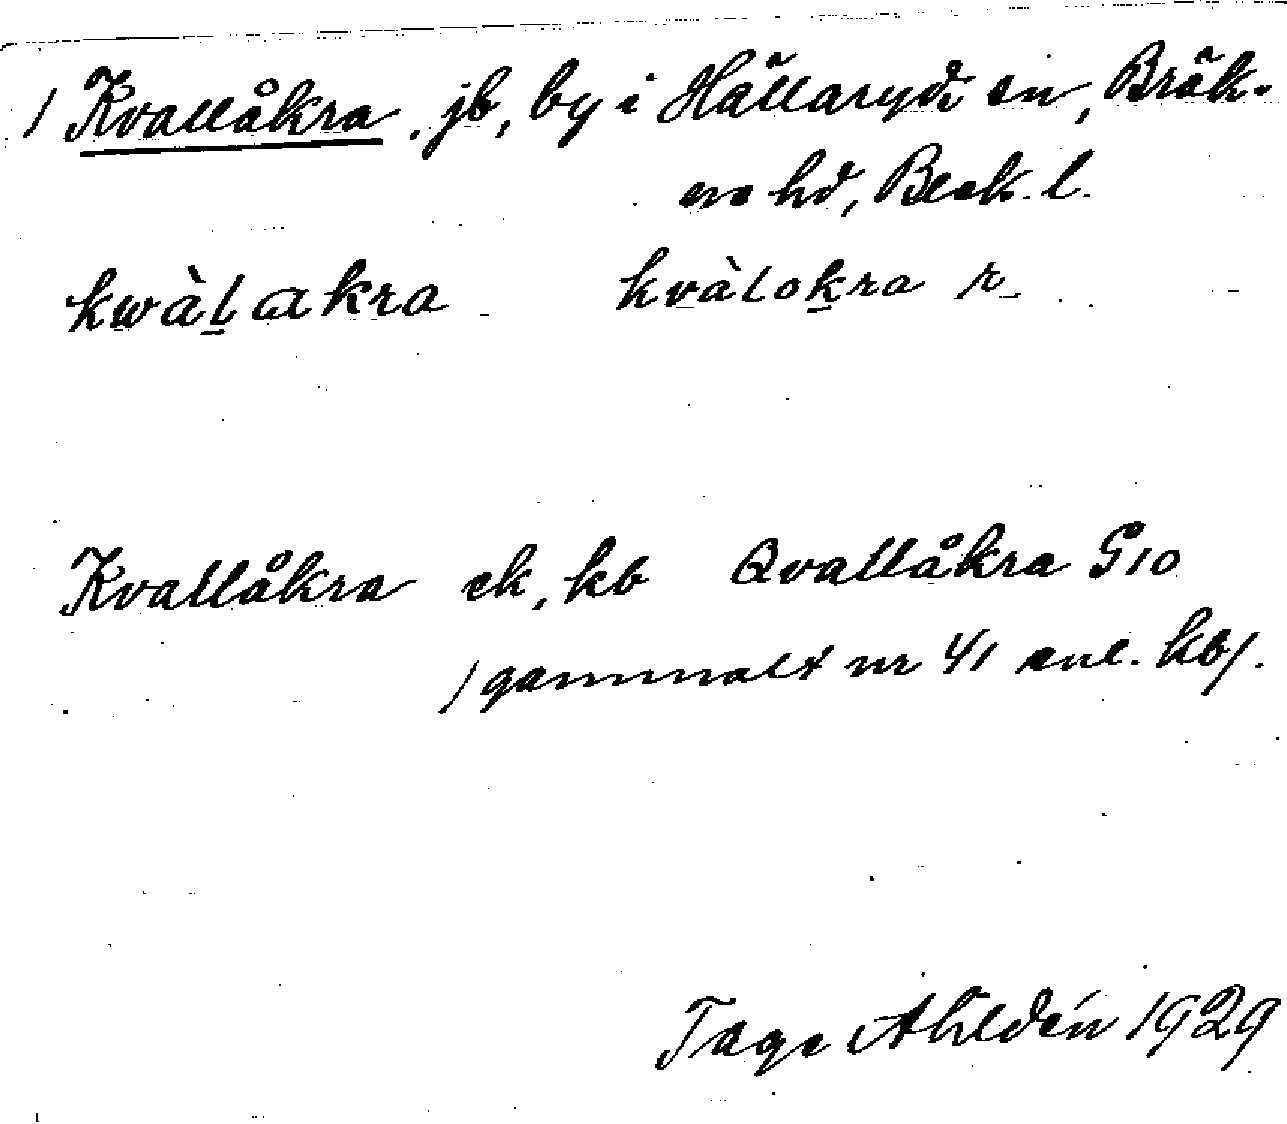 / Kvallåkra, jb, by i Hällaryds sn, Bräk-
ne hd, Blek. l.
kwàlakra kvàlokra r
Kvallåkra ek, kb Qvallåkra G10
/gammalt nr 41 enl. kb/.
Tage Ahldén 1929